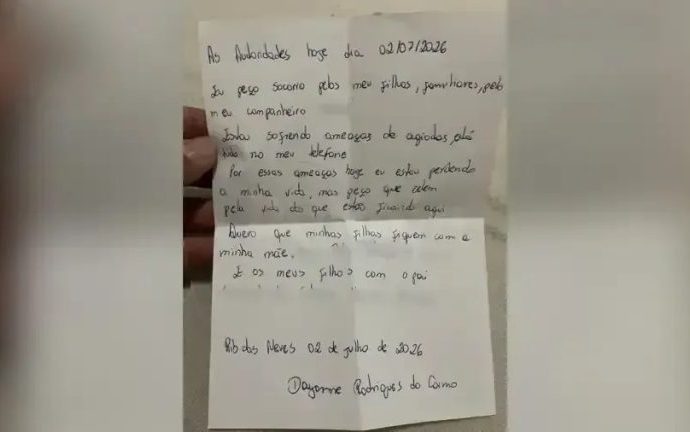 As Autoridades hoje dia 02/07/2026
Eu peço socorro pelos meu filhos, familhares, pelo
meu companheiro
Estou sofrendo ameaças de agiotas, está
tudo no meu telefone
Por essas ameaças hoje eu estou perdendo
a minha vida, mas peço que zelem
pela vida do que estão ficando aqui
Quero que minhas filhas fiquem com a
minha mãe.
E os meus filhos com o pai
Rib das Neves 02 de julho de 2026
Dayanne Rodrigues do Carmo